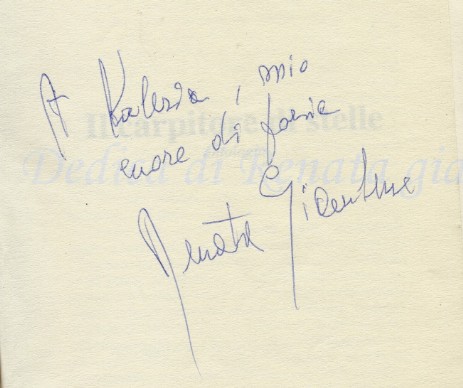 A Valeria, mio
cuore di poesia
Il carpitore di stelle
Dedica di Renata gia
Renata Giambene